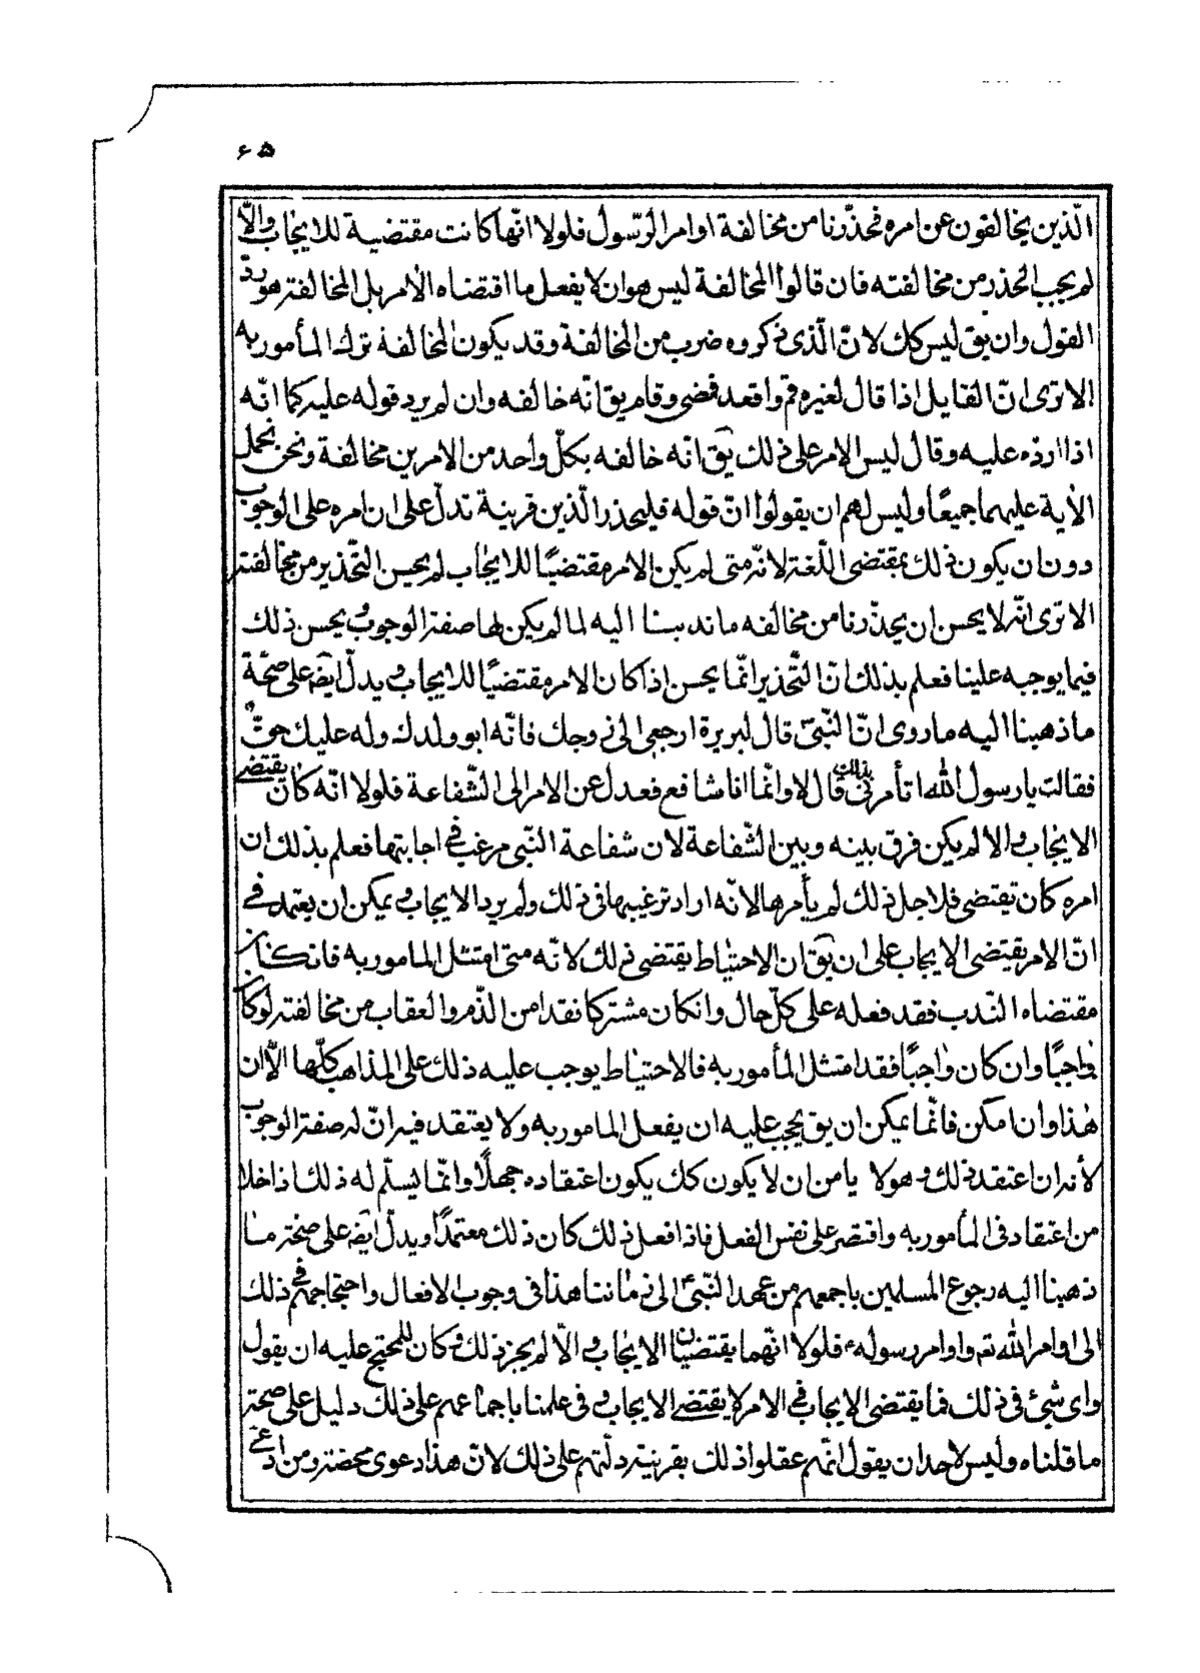 ۶۵
الّذين يخالفون عن امره فحذّرنا من مخالفة اوامر الرّسول فلولا انّها كانت مقتضية للايجاب والّا
لم يجب الحذر من مخالفته فان قالوا المخالفة ليس هو ان لا يفعل ما اقتضاه الأمر بل المخالفة هو ردّ
القول وان يق ليس كك لانّ الّذى ذكروه ضرب من المخالفة وقد يكون المخالفة ترك المأمور به
الا ترى انّ القايل اذا قال لغيره قم واقعد فمضى وقام يق انّه خالفه وان لم يرد قوله عليه كما انّه
اذا اردّه عليه وقال ليس الامر على ذلك يق انّه خالفه بكلّ واحد من الامرين مخالفة ونحن نحمل
الأية عليهما جميعًا وليس لهم ان يقولوا انّ قوله فليحذر الّذين قرينة تدلّ على ان امره على الوجوب
دون ان يكون ذلك بمقتضى اللّغة لانّه متى لم يكن الامر مقتضيًا للايجاب لم يحسن التّحذير من مخالفته
الا ترى انّه لا يحسن ان يحذّرنا من مخالفه ما ندبنا اليه لما لم يكن لها صفة الوجوب و يحسن ذلك
فيما يوجبه علينا فعلم بذلك انّ التّحذير انّما يحسن اذا كان الامر مقتضيًا للايجاب و يدلّ ايضه على صحّة
ما ذهبنا اليه ما روى انّ النّبىّ قال لبريرة ارجعى الى زوجك فانّه ابو ولدك وله عليك حقّ
فقالت يا رسول الله اتأمرنى بذلك قال لا وانّما انا شافع فعدل عن الامر الى الشّفاعة فلولا انّه كان يقتضى
الايجاب و الا لم يكن فرق بينه وبين الشّفاعة لان شفاعة النّبى مرغب فى اجابتها فعلم بذلك ان
امره كان تقتضى فلاجل ذلك لم يأمرها لانّه اراد ترغيبها فى ذلك ولم يرد الايجاب و يمكن ان يعتمد فى
انّ الامر يقتضى الايجاب على ان يق ان الاحتياط يقتضى ذلك لانّه متى امتثل المامور به فان كان
مقتضاه النّدب فقد فعله على كلّ حال وان كان مشتركا فقد امن الذّم والعقاب من مخالفته لو كان
واجبًا وان كان واجبًا فقد امتثل المأمور به فالاحتياط يوجب عليه ذلك على المذاهب كلّها الّا ان
هٰذا وان امكن فانّما يمكن ان يق يجب عليه ان يفعل المامور به ولا يعتقد فيه انّ له صفة الوجوب
لأنه ان اعتقد ذلك و هو لا يامن ان لا يكون كك يكون اعتقاده جهلًا وانّما يسلّم له ذلك اذا خلا
من اعتقاد فى المأمور به واقتصر على نفس الفعل فاذا فعل ذلك كان ذلك معتمدًا ويدلّ ايضه على صحّته ما
ذهبنا اليه رجوع المسلمين باجمعهم من عهد النّبىّ الى زماننا هذا فى وجوب الافعال واحتجاجهم فى ذلك
الى اوامر الله تعه واوامر رسوله ع فلولا انّهما يقتضيان الايجاب و الّا لم يجز ذلك و كان للمحتج عليه ان يقول
واى شئ فى ذلك فما يقتضى الايجاب فى الامر لا يقتضى الايجاب و فى علمنا باجماعهم على ذلك دليل على صحّة
ما قلناه وليس لاحد ان يقول انّهم عقلوا ذلك بقرينة دلّتهم على ذلك لانّ هذا دعوى محضة ومن ادّعى